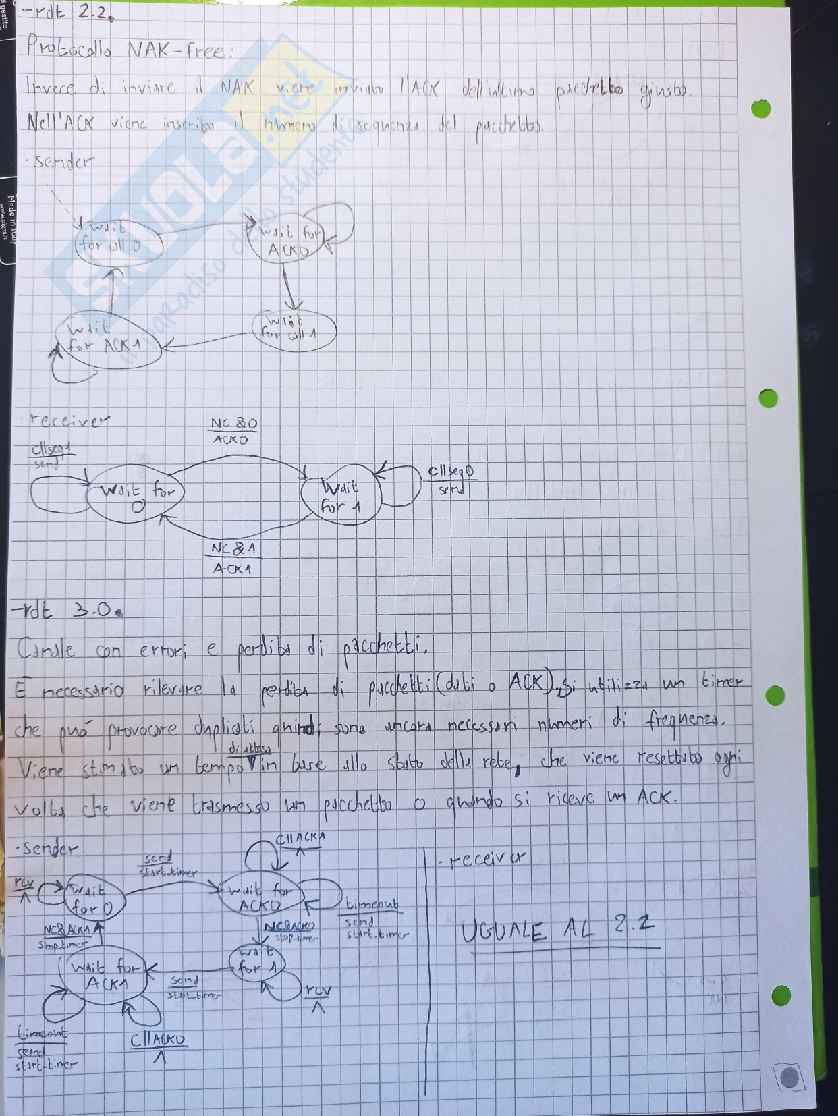 -rdt 2.2.
Protocollo NAK-free:
Invece di inviare il NAK viene inviato l'ACK dell'ultimo pacchetto giusto.
Nell'ACK viene inserito il numero di sequenza del pacchetto.
·sender
Wait for call 0
Wait for ACK0
Wait for ACK1
Wait for call 1
receiver
NC&0
ACK0
C||seq1
send
Wait for 0
Wait for 1
C||seq0
send
NC&1
ACK1
-rdt 3.0.
Canale con errori e perdita di pacchetti.
È necessario rilevare la perdita di pacchetti (dati o ACK). Si utilizza un timer
che può provocare duplicati quindi sono ancora necessari numeri di frequenza.
Viene stimato un tempo di attesa in base allo stato della rete, che viene resettato ogni
volta che viene trasmesso un pacchetto o quando si riceve un ACK.
·sender
·receiver
C||ACK1
Λ
send
start.timer
rcv
Λ
Wait for 0
Wait for ACK0
timeout
send
start.timer
NC&ACK1
stop.timer
NC&ACK0
stop.timer
UGUALE AL 2.2
Wait for ACK1
send
start.timer
Wait for 1
rcv
Λ
timeout
send
start.timer
C||ACK0
Λ
SKUOLA.net
il paradiso dello studente